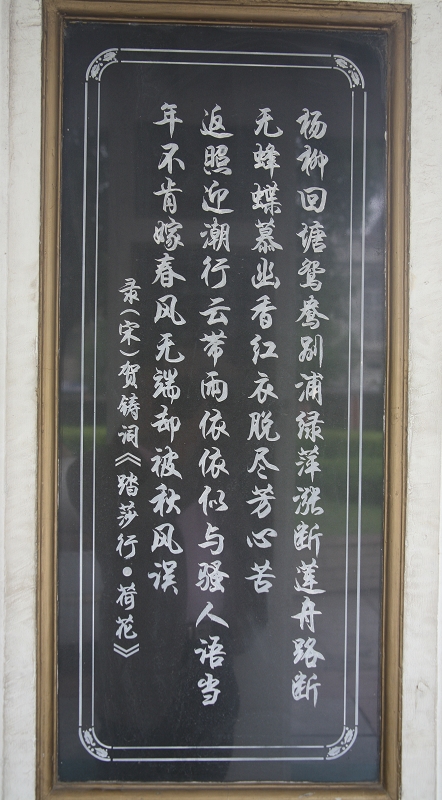 杨柳回塘鸳鸯别浦绿萍涨断莲舟路断
无蜂蝶慕幽香红衣脱尽芳心苦
返照迎潮行云带雨依依似与骚人语当
年不肯嫁春风无端却被秋风误
录（宋）贺铸词《踏莎行·荷花》